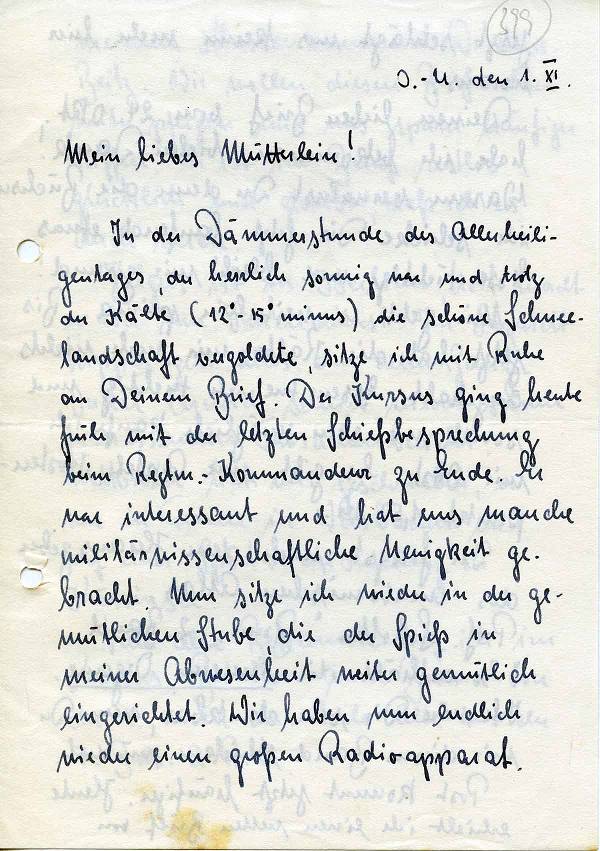 399
O.-U. den 1. XI.
Mein liebes Mütterlein!
In der Dämmerstunde des Allerheili-
gentages, der herrlich sonnig war und trotz
der Kälte, (12°-15° minus) die schöne Schnee-
landschaft vergoldete, sitze ich mit Ruhe
an Deinem Brief. Der Kursus ging heute
früh mit der letzten Schießbesprechung
beim Regtm.-Kommandeur zu Ende. Er
war interessant und hat uns manche
militärwissenschaftliche Neuigkeit ge-
bracht. Nun sitze ich wieder in der ge-
mütlichen Stube, die der Spieß in
meiner Abwesenheit weiter gemütlich
eingerichtet. Wir haben nun endlich
wieder einen großen Radioapparat.